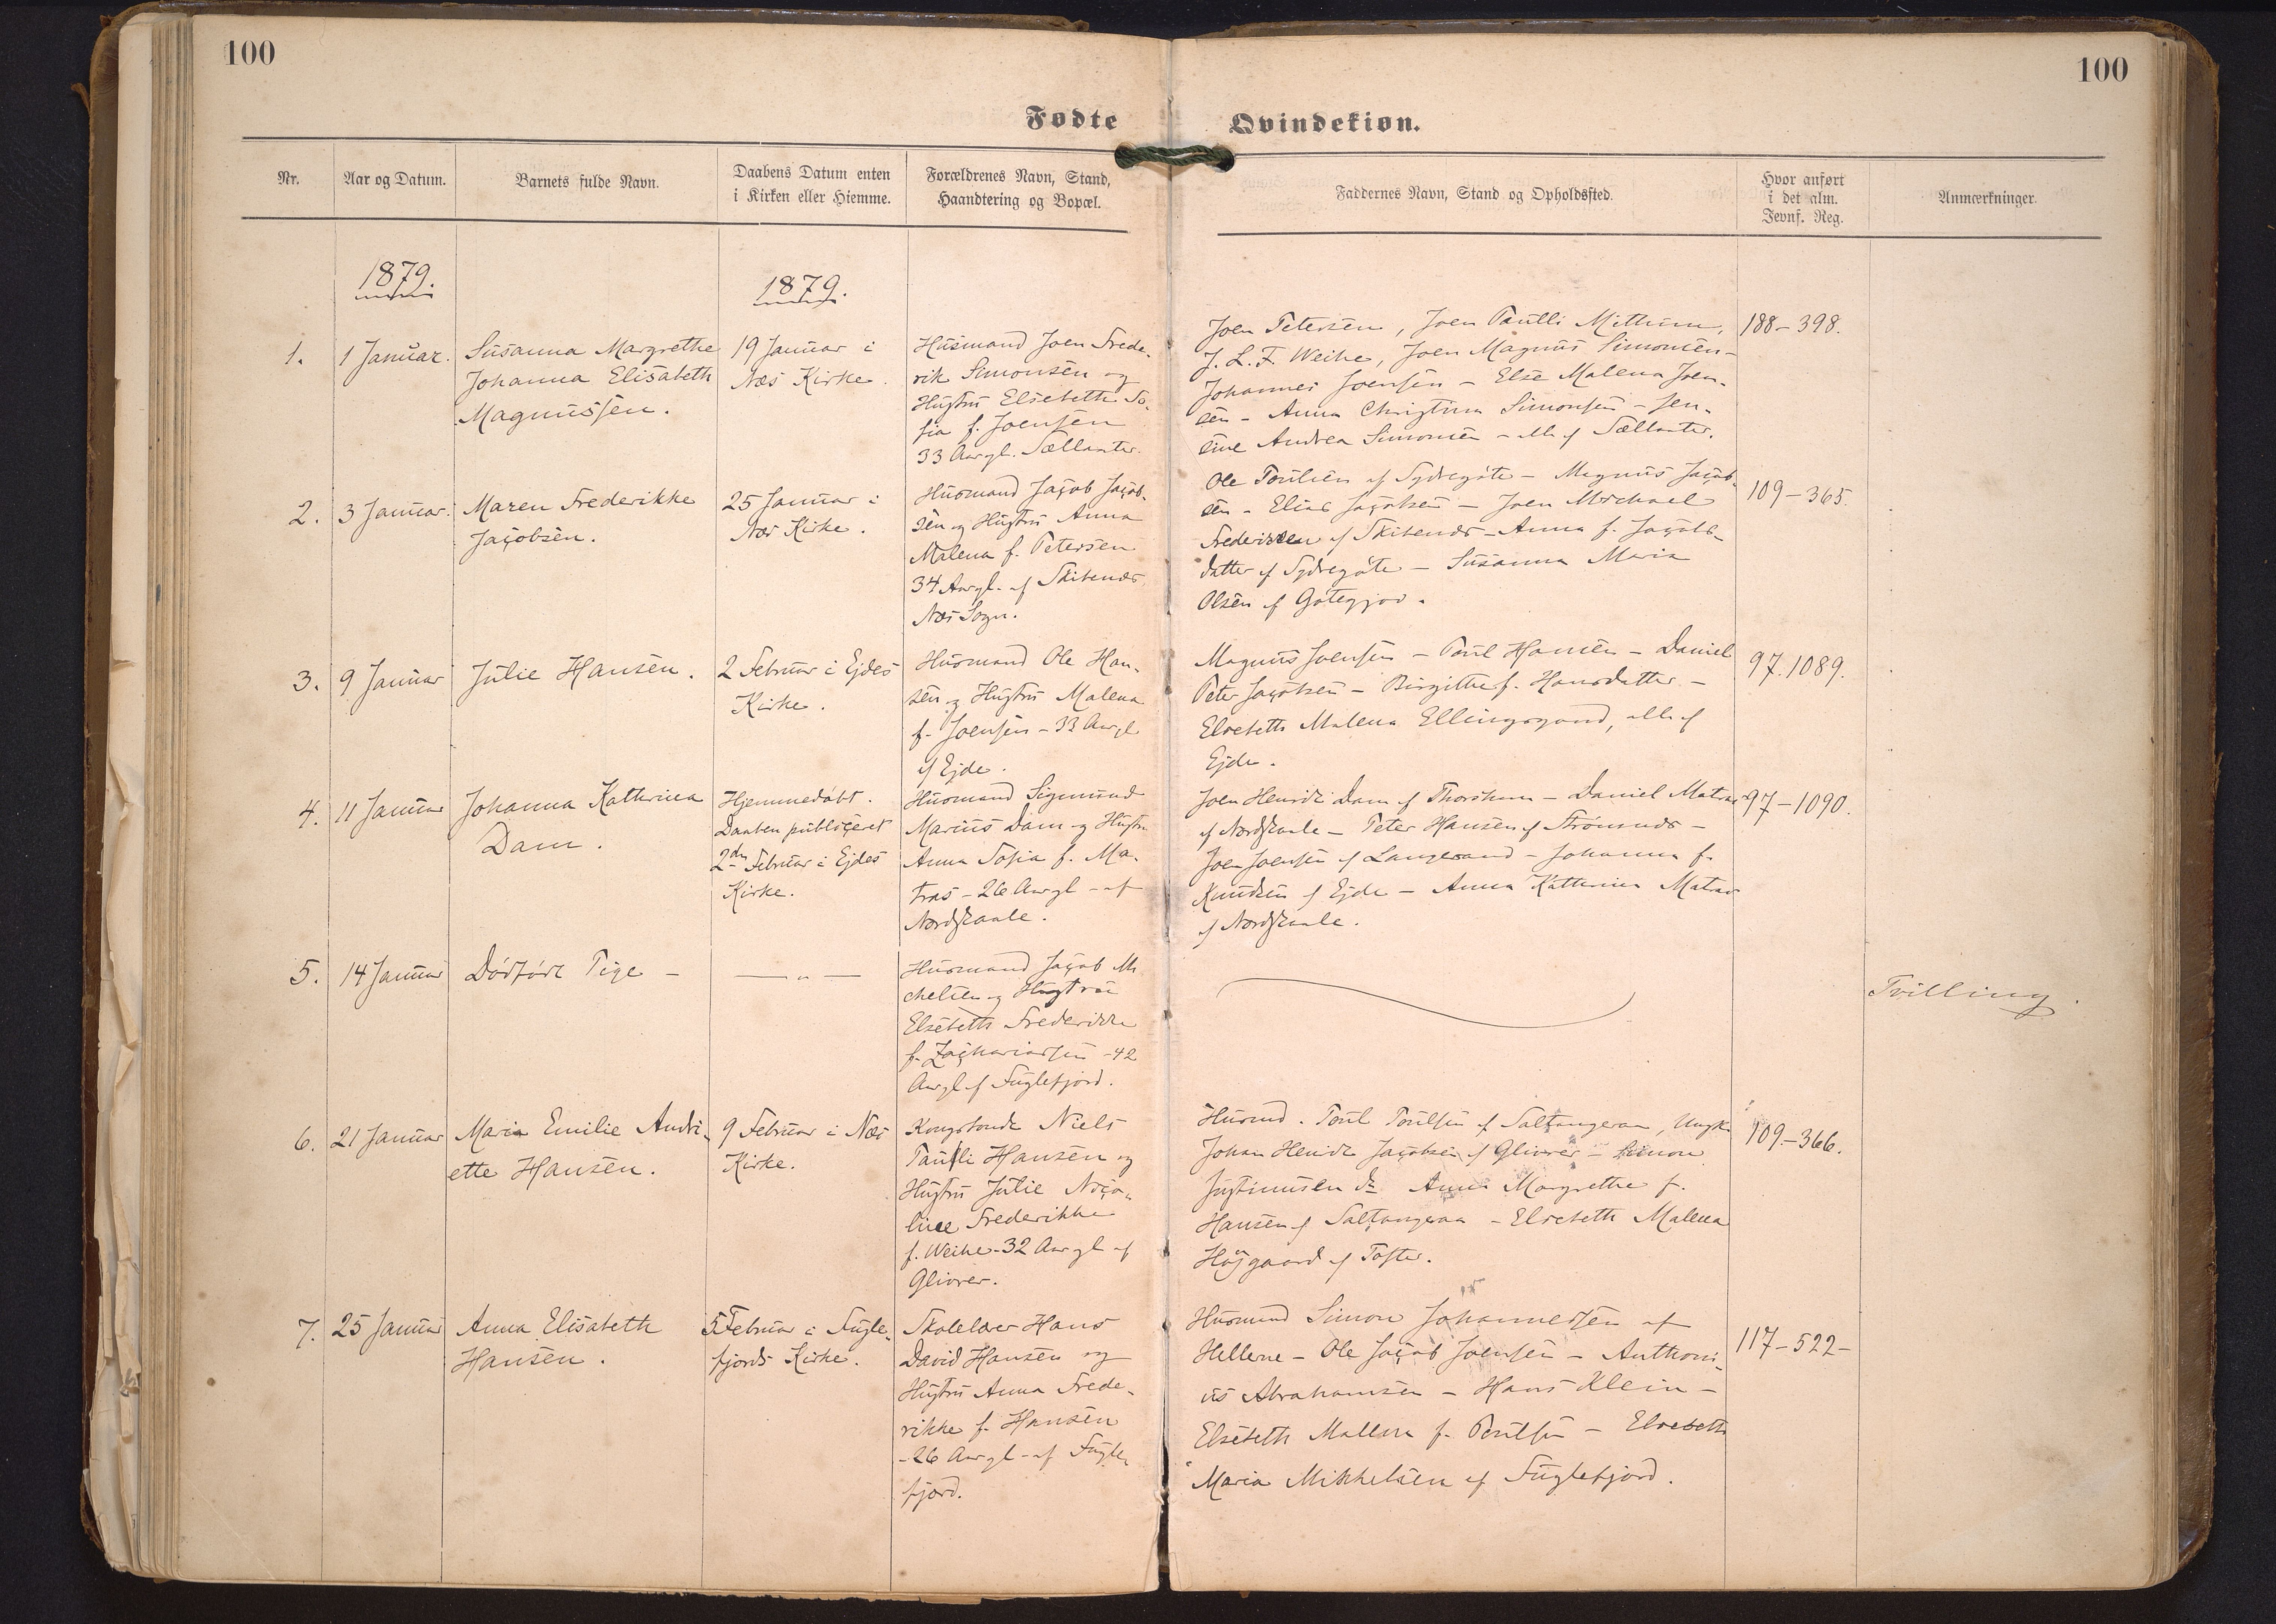 100
100
Fødte Qvindekiøn.
Nr.
Aar og Datum.
Barnets fulde Navn.
Daabens Datum enten
i Kirken eller Hiemme.
Forældrenes Navn, Stand,
Haandtering og Bopæl.
Faddernes Navn, Stand og Opholdssted.
Hvor anført
i det alm.
Jevnf. Reg.
Anmærkninger.
1879.
1879.
1.
1 Januar.
Susanna Margrethe
Johanna Elisabeth
Magnussen.
19 Januar i
Næs Kirke.
Husmand Joen Frede-
rik Simonsen og
Hustru Elsebeth So-
fia f. Joensen
33 Aar gl. Sælletræ.
Joen Petersen, Joen Paulli
J. L. F. Weihe, Joen Magnus Simonsen -
Johannes Joensen - Else Malena Joen-
sen - Anna Christina Simonsen - Jen-
sine Andrea Simonsen - alle af
188-398.
2.
3 Januar.
Maren Frederikke
Jacobsen.
25 Januar i
Næs Kirke.
Husmand Jacob Jacob-
sen og Hustru Anna
Malena f. Petersen
34 Aar gl. af Skibenæs
Næs Sogn.
Ole Poulsen af Sydregøte - Magnus Jacob-
sen - Elias Jacobsen - Joen Michael
Frederiksen af Skibenæs - Anna f. Jacobs-
datter af Sydregøte - Susanna Maria
Olsen af Gøtegjov.
109-365.
3.
9 Januar
Julie Hansen.
2 Februar i Ejdes
Kirke.
Husmand Ole Han-
sen og Hustru Malena
f. Joensen - 33 Aar gl
af Ejde.
Magnus Joensen - Poul Hansen - Daniel
Peter Jacobsen - Birgithe f. Hansdatter -
Elsebeth Malena Ellingsgaard, alle af
Ejde.
97.1089.
4.
11 Januar
Johanna Kathrina
Dam.
Hjemmedøbt.
Daaben publiceret
2den Februar i Ejdes
Kirke.
Husmand Sigmund
Marius Dam og Hustru
Anna Sofia f. Ma-
tras - 26 Aar gl - af
Nordskaale.
Joen Henrik Dam af Thorshavn - Daniel Matras
af Nordskaale - Peter Hansen af Strømnæs -
Joen Joensen af Langesand - Johanna f.
Knudsen af Ejde - Anna Kathrina Matras
af Nordskaale.
97-1090.
5.
14 Januar
Dødfødt Pige -
— „ —
Husmand Jacob Mi
chelsen og Hustrue
Elsebeth Frederikke
f. Zachariasen - 42
Aar gl af Fuglefjord.
Tvilling.
6.
21 Januar
Maria Emilie Andri-
ette Hansen.
9 Februar i Næs
Kirke.
Kongsbonde Niels
Paulli Hansen og
Hustru Julie Nico-
line Frederikke
f. Weihe - 32 Aar gl af
Glivrer.
Husmd. Poul Poulsen af Saltangeraa, Ungk.
Johan Henrik Jacobsen af Glivrer - Simon
Justinussen do Anna Margrethe f.
Hansen af Saltangeraa - Elsebeth Malena
Højgaard af Tofter.
109-366.
7.
25 Januar
Anna Elisabeth
Hansen.
5 Februar i Fugle-
fjords Kirke.
Skolelærer Hans
David Hansen og
Hustru Anna Frede-
rikke f. Hansen
- 26 Aar gl - af Fugle-
fjord.
Husmand Simon Johannesen af
Hellerne - Ole Jacob Joensen - Anthoni-
us Abrahamsen - Hans Klein -
Elsebeth Malena f. Poulsen - Elsebeth
Maria Mikkelsen af Fuglefjord.
117-522-